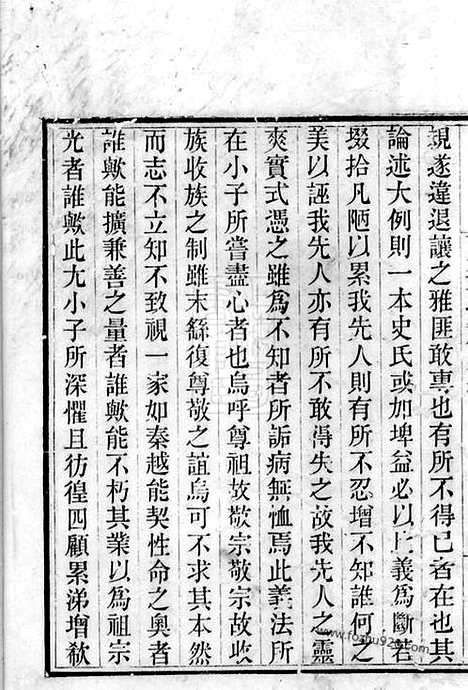 親遂違退讓之雅匪敢專也有所不得已者在也其
論述大例則一本史氏或加埤益必以上義為斷若
掇拾凡陋以累我先人則有所不忍增不知誰何之
美以誣我先人亦有所不敢得失之故我先人之靈
爽實式憑之雖為不知者所詬病無恤焉此義法所
在小子所嘗盡心者也烏呼尊祖故敬宗敬宗故收
族收族之制雖末繇復尊敬之誼烏可不求其本然
而志不立知不致視一家如秦越能契性命之奧者
誰歟能擴兼善之量者誰歟能不朽其業以為祖宗
光者誰歟此尢小子所深懼且彷徨四顧累涕增欷
www.foshu925.com